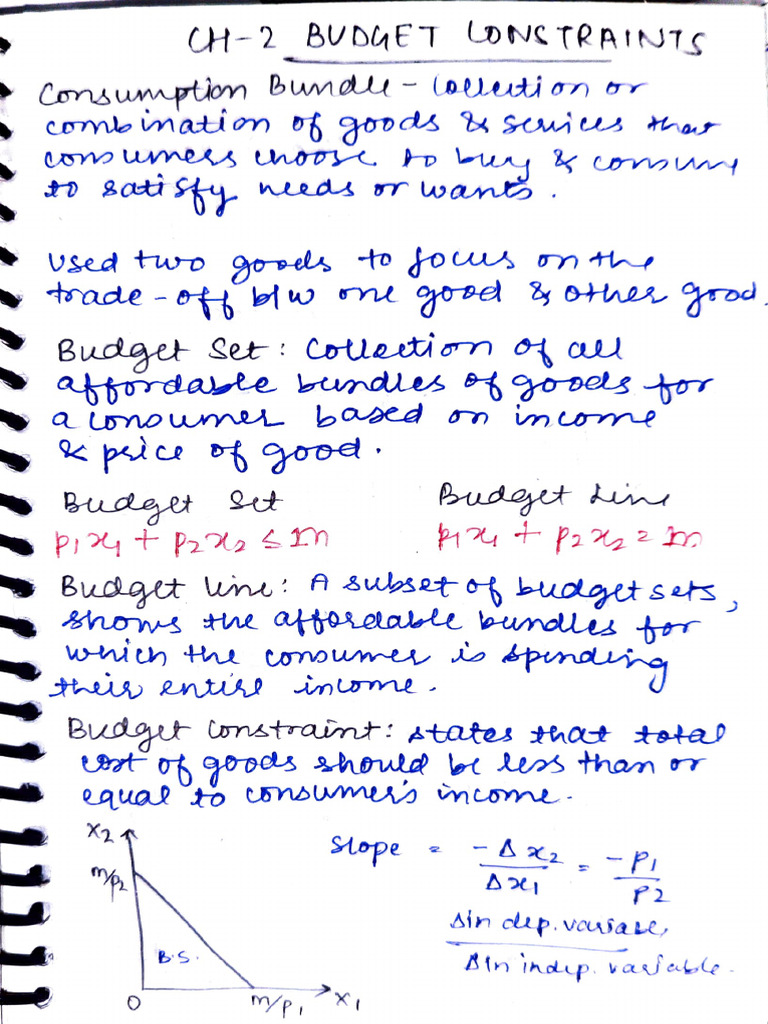 CH-2 BUDGET CONSTRAINTS
Consumption Bundle - Collection or
combination of goods & services that
consumers choose to buy & consume
to satisfy needs or wants.
Used two goods to focus on the
trade-off b/w one good & other good.
Budget Set: Collection of all
affordable bundles of goods for
a consumer based on income
& price of good.
Budget Set Budget Line
p₁x₁ + p₂x₂ ≤ m p₁x₁ + p₂x₂ = m
Budget line: A subset of budget sets,
shows the affordable bundles for
which the consumer is spending
their entire income.
Budget Constraint: states that total
cost of goods should be less than or
equal to consumer's income.
x₂
m/p₂
B.S.
0 m/p₁ x₁
Slope = -Δx₂/Δx₁ = -p₁/p₂
Δ in dep. variable
Δ in indep. variable.